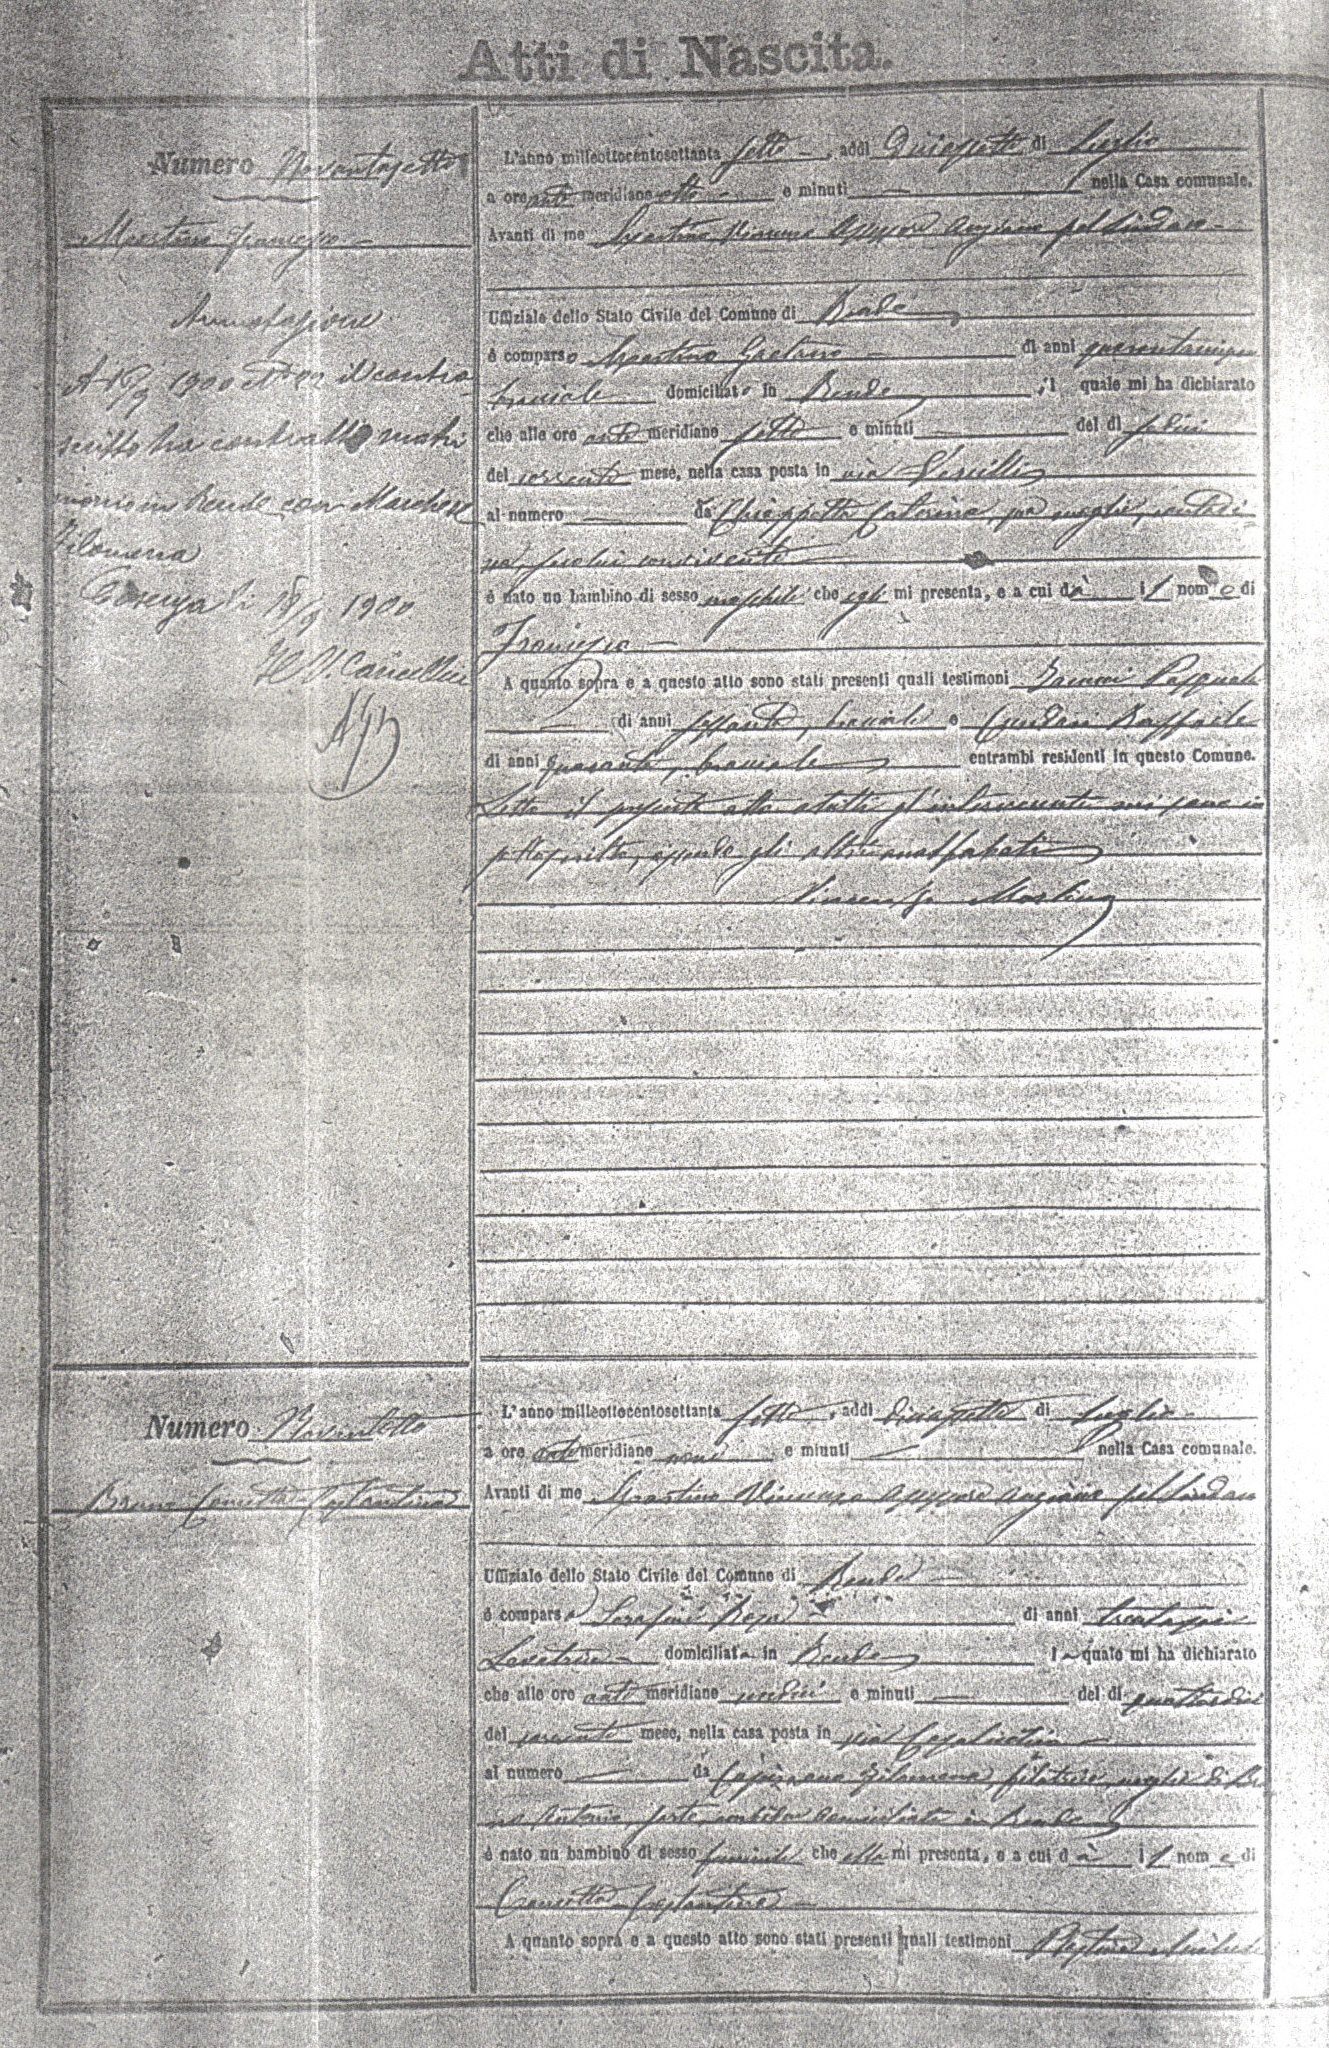 Atti di Nascita.
Numero Novantasette
Mastino Francesco
Annotazione
A 16/9 1900 il contro
scritto ha contratto matri
monio in Rende con Marchese
Filomena
Cosenza li 18/9 1900
Il V. Cancelliere
L'anno milleottocentosettanta sette, addì Diciassette di Luglio
a ore ante meridiane otto e minuti — nella Casa comunale.
Avanti di me Mastino Vincenzo Assessore anziano pel Sindaco
Uffiziale dello Stato Civile del Comune di Rende
è comparso Mastino Gaetano di anni quarantacinque
bracciale domiciliato in Rende, il quale mi ha dichiarato
che alle ore ante meridiane sette e minuti — del dì sedici
del corrente mese, nella casa posta in via
al numero — da Chiappetta sua moglie, contadi
na, seco lui convivente
è nato un bambino di sesso maschile che egli mi presenta, e a cui dà il nome di
Francesco
A quanto sopra e a questo atto sono stati presenti quali testimoni Pasquale
— di anni sessanta, bracciale e Raffaele
di anni quaranta, bracciale entrambi residenti in questo Comune.
Letto il presente atto a tutti gl'intervenuti mi sono io
sottoscritto, essendo gli altri analfabeti
Vincenzo Mastino
Numero Novantotto
Bruno Concetta Costantina
L'anno milleottocentosettanta sette, addì diciassette di Luglio
a ore ante meridiane nove e minuti — nella Casa comunale.
Avanti di me Mastino Vincenzo Assessore anziano pel Sindaco
Uffiziale dello Stato Civile del Comune di Rende
è comparsa Serafini Rosa di anni trentasei
Levatrice domiciliata in Rende la quale mi ha dichiarato
che alle ore anti meridiane undici e minuti — del dì quattordici
del corrente mese, nella casa posta in via
al numero — da Filomena, filatrice, moglie di Bru
no Antonio, domiciliata in Rende
è nato un bambino di sesso femminile che ella mi presenta, e a cui dà il nome di
Concetta Costantina
A quanto sopra e a questo atto sono stati presenti quali testimoni Michele